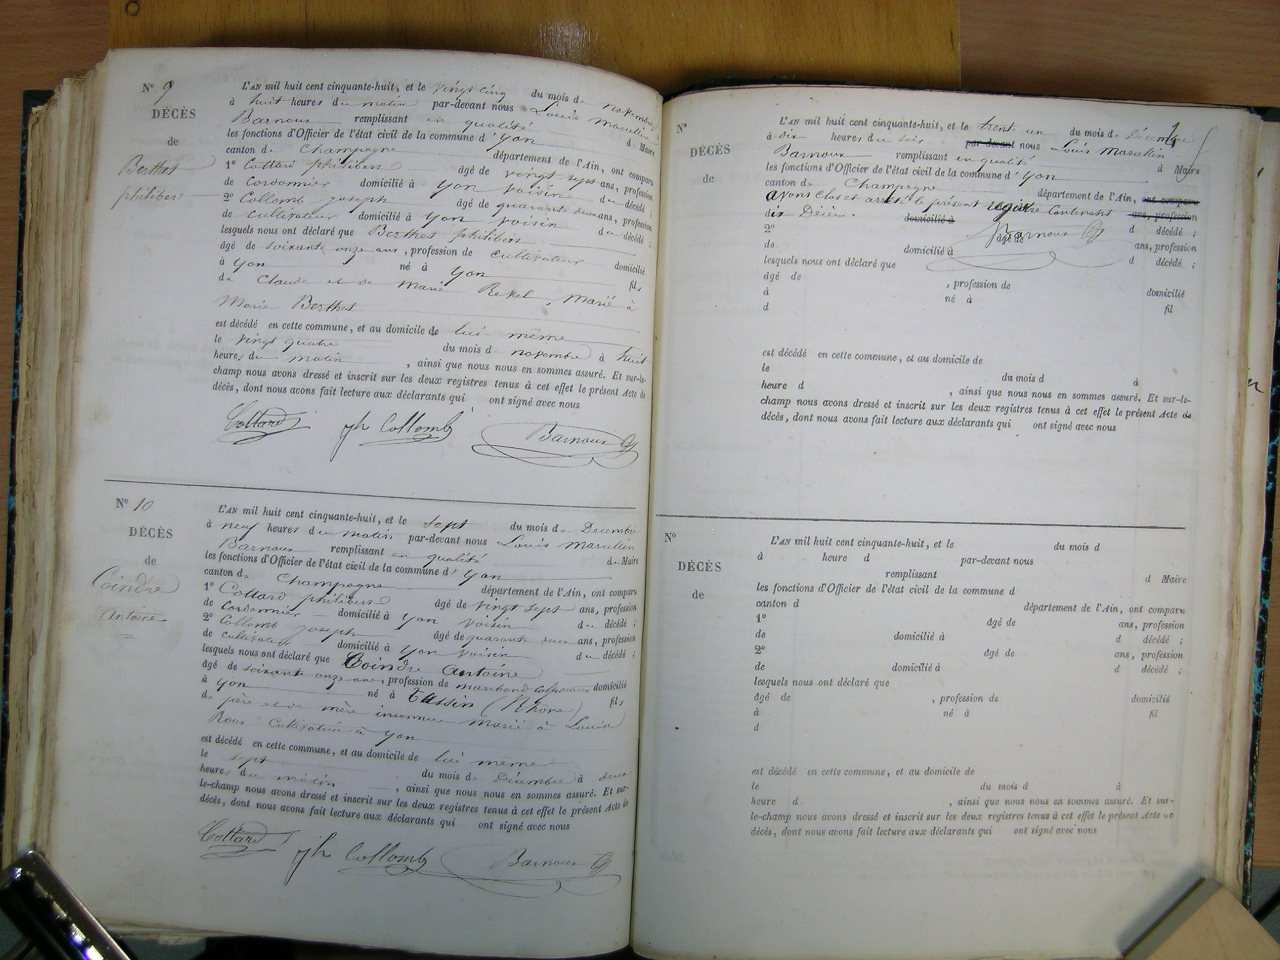 N° 9
DÉCÈS
de
Berthet
philibert
L'AN mil huit cent cinquante-huit, et le vingt cinq du mois de novembre
à huit heures du matin par-devant nous Louis Marcelin
Barnoux remplissant en qualité de Maire
les fonctions d'Officier de l'état civil de la commune d'Yon
canton de Champagne département de l'Ain, ont comparu
1° Collard philibert âgé de vingt sept ans, profession
de Cordonnier domicilié à Yon voisin du décédé ;
2° Collomb joseph âgé de quarante deux ans, profession
de cultivateur domicilié à Yon voisin du décédé ;
lesquels nous ont déclaré que Berthet philibert
âgé de soixante onze ans, profession de cultivateur domicilié
à Yon né à Yon fils
de Claude et de Marie marié à
Marie Berthet
est décédé en cette commune, et au domicile de lui même
le vingt quatre du mois de novembre à huit
heures du matin , ainsi que nous nous en sommes assuré. Et sur-le-
champ nous avons dressé et inscrit sur les deux registres tenus à cet effet le présent Acte de
décès, dont nous avons fait lecture aux déclarants qui ont signé avec nous
Collard jh Collomb Barnoux
N° 10
DÉCÈS
de
Coindre
Antoine
L'AN mil huit cent cinquante-huit, et le sept du mois de Décembre
à neuf heures du matin par-devant nous Louis Marcelin
Barnoux remplissant en qualité de Maire
les fonctions d'Officier de l'état civil de la commune d'Yon
canton de Champagne département de l'Ain, ont comparu
1° Collard philibert âgé de vingt sept ans, profession
de Cordonnier domicilié à Yon voisin du décédé ;
2° Collomb joseph âgé de quarante deux ans, profession
de cultivateur domicilié à Yon voisin du décédé ;
lesquels nous ont déclaré que Coindre Antoine
âgé de soixante onze ans, profession de marchand colporteur domicilié
à Yon né à Tassin (Rhône) fils
de père et de mère inconnus marié à Louise
Roux Cultivateur à Yon
est décédé en cette commune, et au domicile de lui même
le sept du mois de Décembre à deux
heures du matin , ainsi que nous nous en sommes assuré. Et sur-
le-champ nous avons dressé et inscrit sur les deux registres tenus à cet effet le présent Acte de
décès, dont nous avons fait lecture aux déclarants qui ont signé avec nous
Collard jh Collomb Barnoux
N°
DÉCÈS
de
L'AN mil huit cent cinquante-huit, et le trent un du mois de Décembre
à dix heures du soir par-devant nous Louis Marcelin
Barnoux remplissant en qualité d Maire
les fonctions d'Officier de l'état civil de la commune d'Yon
canton de Champagne département de l'Ain, ont comparu
avons clos et arrêté le présent registre Contenant ans, profession
dix Décès. domicilié à d décédé ;
2° âgé de Barnoux ans, profession
de domicilié à d décédé ;
lesquels nous ont déclaré que
âgé de , profession de domicilié
à né à fil
d
est décédé en cette commune, et au domicile de
le du mois d à
heure d , ainsi que nous nous en sommes assuré. Et sur-le-
champ nous avons dressé et inscrit sur les deux registres tenus à cet effet le présent Acte de
décès, dont nous avons fait lecture aux déclarants qui ont signé avec nous
N°
DÉCÈS
de
L'AN mil huit cent cinquante-huit, et le du mois d
à heure d par-devant nous
remplissant d Maire
les fonctions d'Officier de l'état civil de la commune d
canton d département de l'Ain, ont comparu
1° âgé de ans, profession
de domicilié à d décédé ;
2° âgé de ans, profession
de domicilié à d décédé ;
lesquels nous ont déclaré que
âgé de , profession de domicilié
à né à fil
d
est décédé en cette commune, et au domicile de
le du mois d à
heure d , ainsi que nous nous en sommes assuré. Et sur-
le-champ nous avons dressé et inscrit sur les deux registres tenus à cet effet le présent Acte de
décès, dont nous avons fait lecture aux déclarants qui ont signé avec nous